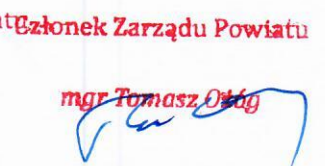 Członek Zarządu Powiatu
mgr Tomasz Ożóg